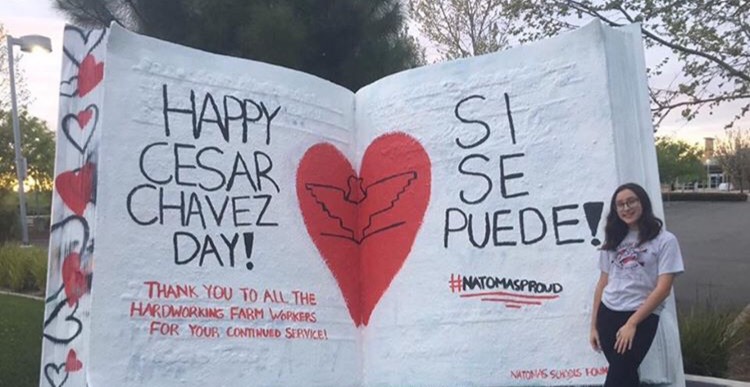 HAPPY
CESAR
CHAVEZ
DAY!
THANK YOU TO ALL THE
HARDWORKING FARM WORKERS
FOR YOUR CONTINUED SERVICE!
SI
SE
PUEDE!
#NATOMASPROUD
NATOMAS SCHOOLS